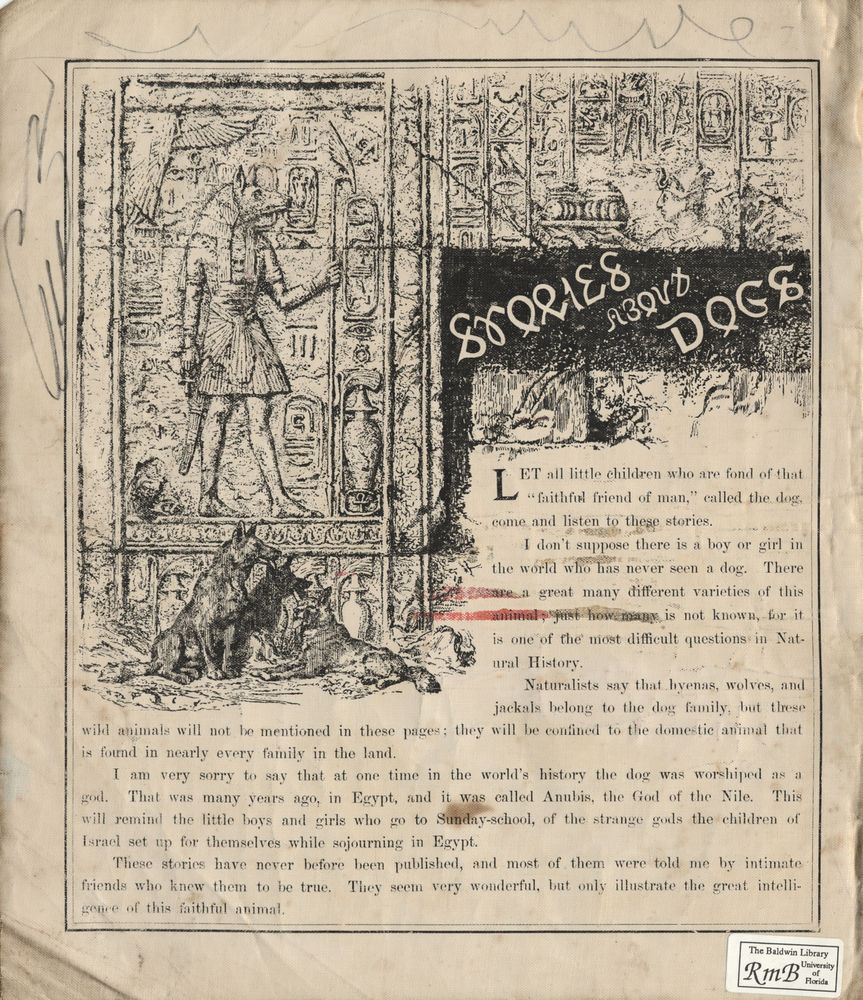 STORIES
ABOUT
DOGS
LET all little children who are fond of that
"faithful friend of man," called the dog,
come and listen to these stories.
I don't suppose there is a boy or girl in
the world who has never seen a dog. There
are a great many different varieties of this
animal; just how many is not known, for it
is one of the most difficult questions in Nat-
ural History.
Naturalists say that hyenas, wolves, and
jackals belong to the dog family, but these
wild animals will not be mentioned in these pages; they will be confined to the domestic animal that
is found in nearly every family in the land.
I am very sorry to say that at one time in the world's history the dog was worshiped as a
god. That was many years ago, in Egypt, and it was called Anubis, the God of the Nile. This
will remind the little boys and girls who go to Sunday-school, of the strange gods the children of
Israel set up for themselves while sojourning in Egypt.
These stories have never before been published, and most of them were told me by intimate
friends who knew them to be true. They seem very wonderful, but only illustrate the great intelli-
gence of this faithful animal.
The Baldwin Library
RmB University
of
Florida